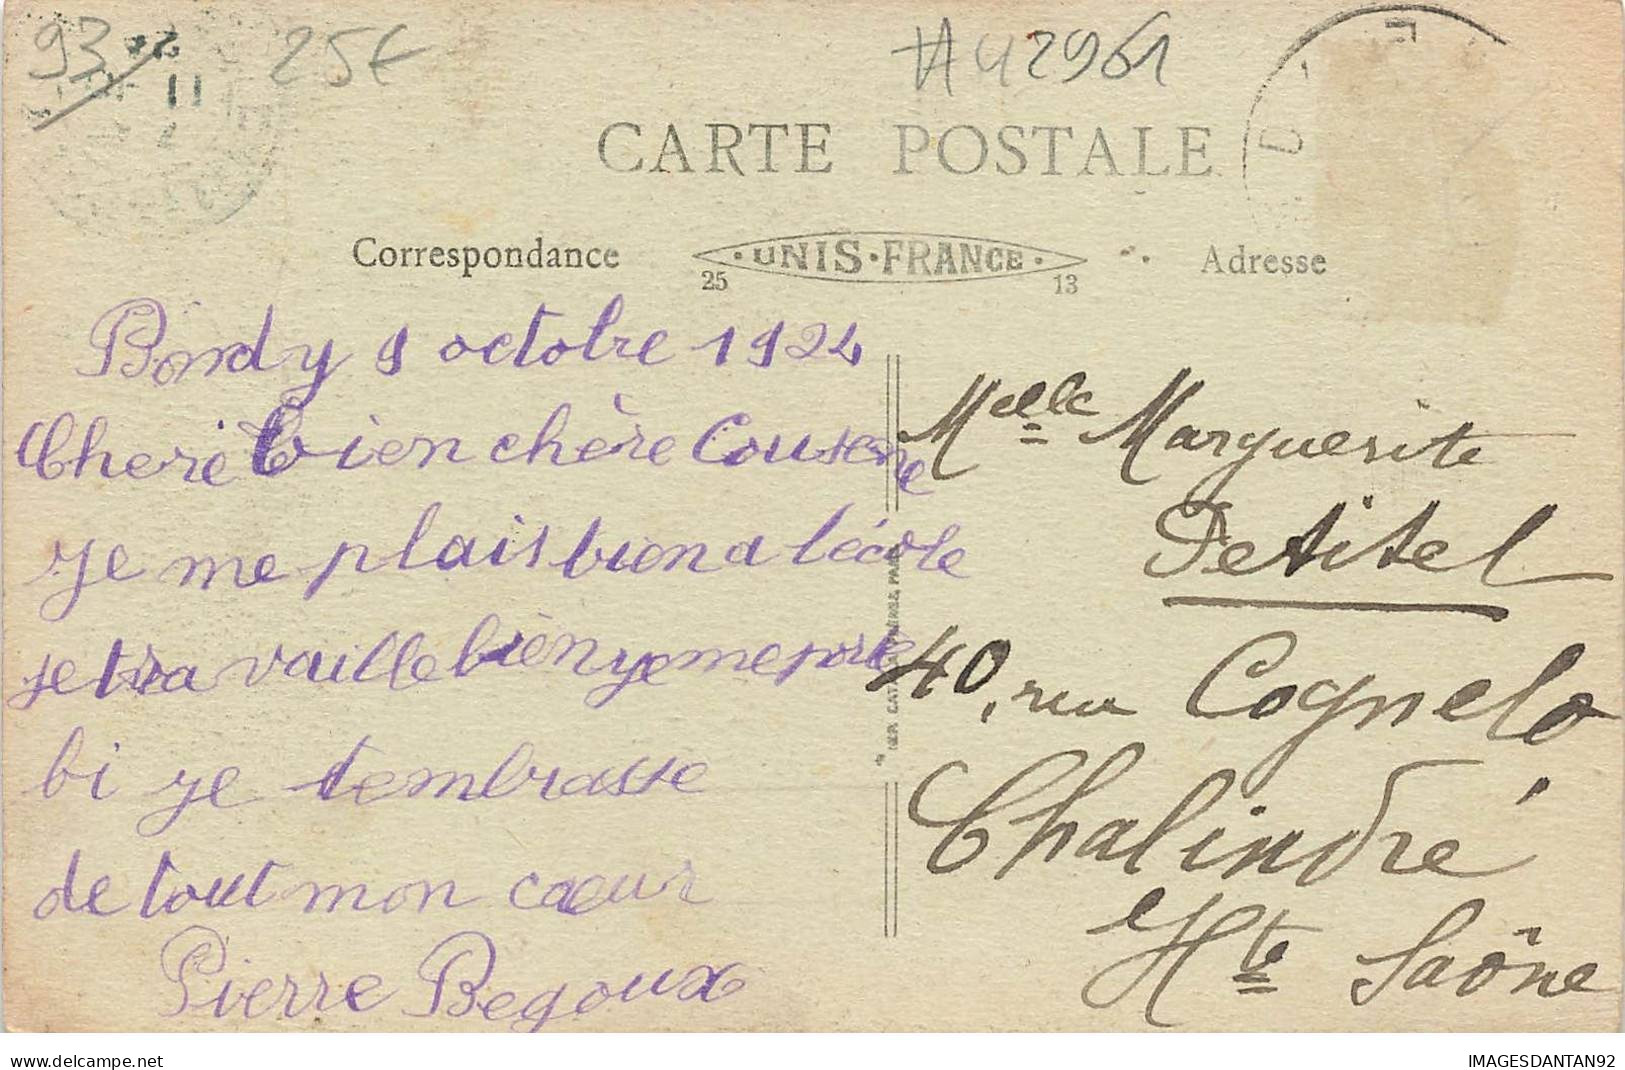 93
25€
#42961
CARTE POSTALE
Correspondance
UNIS·FRANCE
25
13
Adresse
Bondy 9 octobre 1924
Cheré bien chère Cousene
Je me plais bien a lécole
je tra vaille bien ye me porte
bi ye tembrasse
de tout mon cœur
Pierre Begoux
Melle Marguerite
Petitel
40, rue Cognelo
Chalindré
Hte Saône
delcampe.net
IMAGESDANTAN92